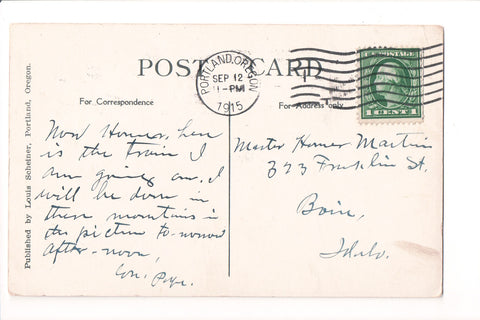 POST CARD
PORTLAND, OREGON
SEP 12
11-PM
1915
1 CENT 1
For Correspondence
For Address only
Now Homer, here
is the train I
am going on. I
will be down in
these mountains in
the picture to-morrow
after-noon,
Master Homer Martin
323 Franklin St.
Boise,
Idaho.
Published by Louis Scheiner, Portland, Oregon.